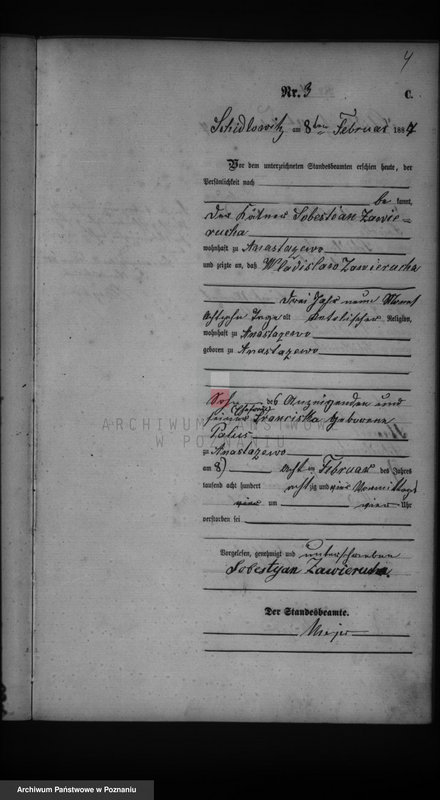 4
Nr. 3 C.
Schidlowitz am 8ten Februar 1884
Vor dem unterzeichneten Standesbeamten erschien heute, der
Persönlichkeit nach
be kannt,
der Kätner Sobestian Zawie-
rucha
wohnhaft zu Anastazewo
und zeigte an, daß Wladislaw Zawierucha
drei Jahr neun Monat
achtzehn Tage alt katolischer Religion,
wohnhaft zu Anastazewo
geboren zu Anastazewo
Sohn des Anzeigenden und
seiner Ehefrau Franciska geborene
Palus
zu Anastazewo
am 8) acht ten Februar des Jahres
tausend acht hundert acht zig und vier Vormittags
um vier Uhr
verstorben sei
Vorgelesen, genehmigt und unterschrieben
Sobestyan Zawierucha
Der Standesbeamte.
ARCHIWUM PAŃSTWOWE
W POZNANIU
Archiwum Państwowe w Poznaniu